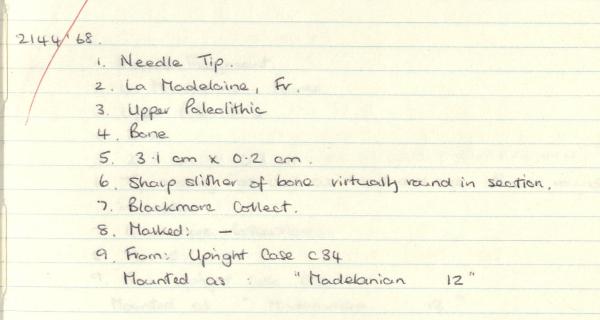 2144'68.
1. Needle Tip.
2. La Madelaine, Fr.
3. Upper Paleolithic
4. Bone
5. 3.1 cm x 0.2 cm.
6. Sharp slither of bone virtually round in section.
7. Blackmore Collect.
8. Marked: —
9. From: Upright Case C34
Mounted as : "Madelanian 12"